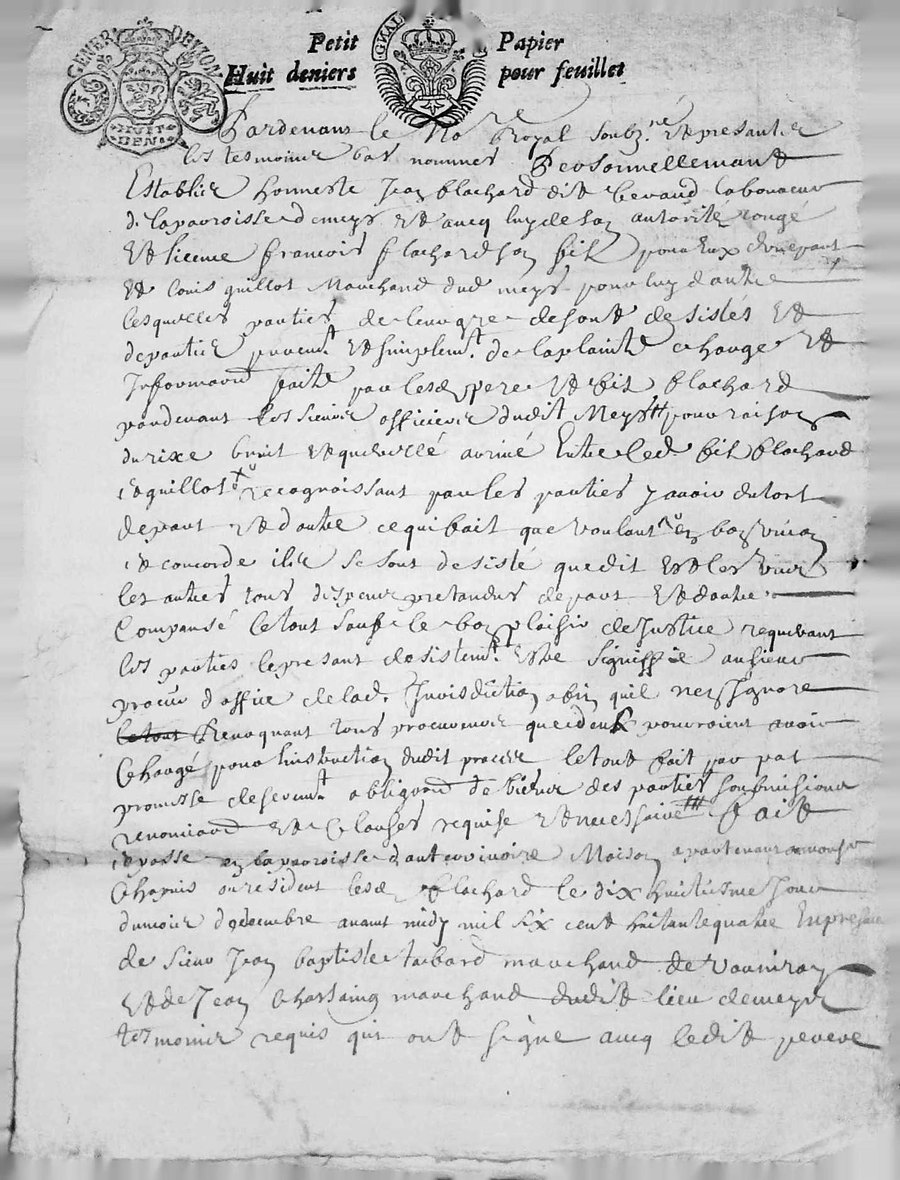 GENER DE LYON
HUIT DEN
GNAL
Petit Papier
Huit deniers pour feuillet
Pardevant le No.re Royal soubz.né et presant et
les tesmoins bas nommes Personnellemant
Establis honneste Jean flachard dit beraud laboureur
de la parroisse de meys et aucq luy de son autorité congé
et licence francois flachard son fils pour eux d'une part
et louis guillot Marchand dud meys pour luy d'autre
lesquelles parties de leur gre se sont desistés et
departies purem.t et simplem.t de la plainte charge et
Informaon faite par lesd pere et fils flachard
pardevant les sieurs officiers dudit Meys pour raison
du rixe bruit et querellé arrivé Entre led fils flachard
et guillot recognoissant par les parties y avoir du tort
de part et d'autre ce qui fait que voulant vivre en bon union
et concorde ils se sont desisté quedit et les uns
les autres tous despens pretandus de part et dautre
Compansé le tout soubs le bon plaisir de Justice requerant
les parties le presant desistem.t estre signiffié au sieur
procur d'office de lad. Jurisdiction afin quil ne l'Ignore
le tout Revoquant tous procureurs que ident pourroient avoir
Chargé pour l'instruction dudit proces le tout fait par pat
promesse de serem.t obligaon de biens des parties soubmissions
renonciaon et Clauses requise et necessaire Fait
et passe en la parroisse d'aut Maison apartenant a mons.r
Chapuis ou resident lesd flachard le dix huitiesme Jour
du mois d'octembre avant midy mil six cent huitante quatre En presence
de sieur Jean baptiste tabard marchand de
et de Jean Chassaing marchand dudit lieu de meys
tesmoins requis qui ont signe aucq ledit pere